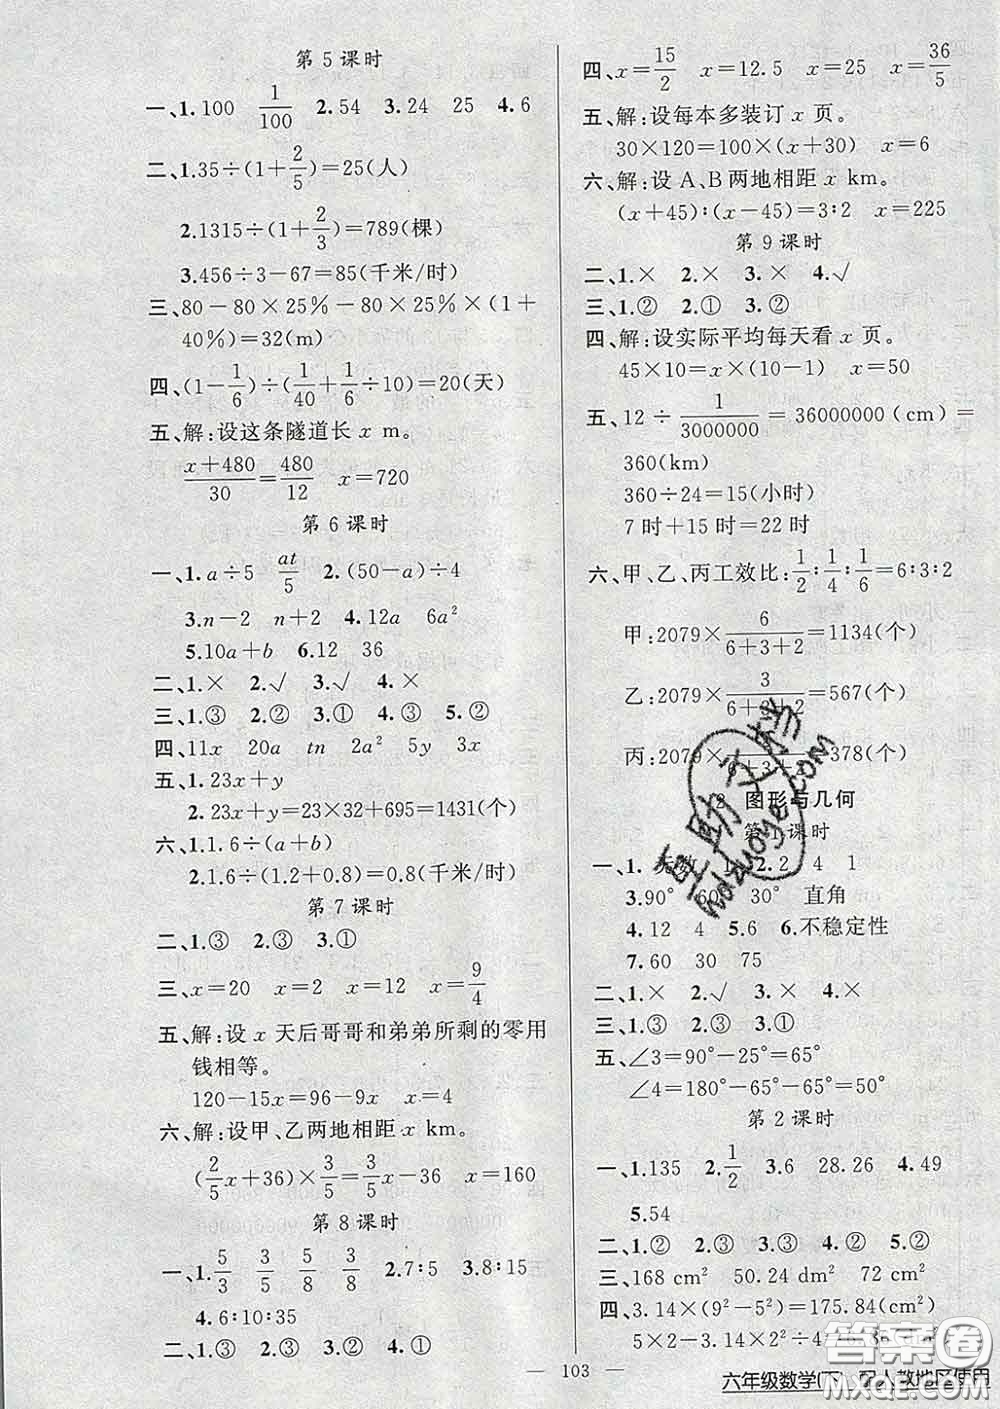 第5课时
一、1.100 1/100 2.54 3.24 25 4.6
二、1.35÷(1+2/5)=25(人)
2.1315÷(1+2/3)=789(棵)
3.456÷3-67=85(千米/时)
三、80-80×25%-80×25%×(1+
40%)=32(m)
四、(1-1/6)÷(1/40+1/6÷10)=20(天)
五、解:设这条隧道长 x m。
(x+480)/30=480/12 x=720
第6课时
一、1.a÷5 at/5 2.(50-a)÷4
3.n-2 n+2 4.12a 6a²
5.10a+b 6.12 36
二、1.× 2.√ 3.√ 4.×
三、1.③ 2.② 3.① 4.③ 5.②
四、11x 20a tn 2a² 5y 3x
五、1.23x+y
2.23x+y=23×32+695=1431(个)
六、1.1.6÷(a+b)
2.1.6÷(1.2+0.8)=0.8(千米/时)
第7课时
二、1.③ 2.③ 3.①
三、x=20 x=2 x=12 x=9/4
五、解:设 x 天后哥哥和弟弟所剩的零用
钱相等。
120-15x=96-9x x=4
六、解:设甲、乙两地相距 x km。
(2/5x+36)×3/5=3/5x-36 x=160
第8课时
一、1.5/3 3/5 5/8 3/8 2.7:5 3.8:15
4.6:10:35
二、1.② 2.③ 3.② 4.①
四、x=15/2 x=12.5 x=25 x=36/5
五、解:设每本多装订 x 页。
30×120=100×(x+30) x=6
六、解:设A、B两地相距 x km。
(x+45):(x-45)=3:2 x=225
第9课时
二、1.× 2.× 3.× 4.√
三、1.② 2.① 3.②
四、解:设实际平均每天看 x 页。
45×10=x×(10-1) x=50
五、12÷1/3000000=36000000(cm)=
360(km)
360÷24=15(小时)
7时+15时=22时
六、甲、乙、丙工效比:1/2:1/4:1/6=6:3:2
甲:2079×6/(6+3+2)=1134(个)
乙:2079×3/(6+3+2)=567(个)
丙:2079×2/(6+3+2)=378(个)
2 图形与几何
第1课时
一、1.无数 1 2.2 4 1
3.90° 60° 30° 直角
4.12 4 5.6 6.不稳定性
7.60 30 75
二、1.× 2.√ 3.× 4.×
三、1.③ 2.③ 3.①
五、∠3=90°-25°=65°
∠4=180°-65°-65°=50°
第2课时
一、1.135 2.1/2 3.6 28.26 4.49
5.54
二、1.② 2.③ 3.② 4.② 5.②
三、168 cm² 50.24 dm² 72 cm²
四、3.14×(9²-5²)=175.84(cm²)
5×2-3.14×2²÷4
— 103 —
六年级数学(下) 配人教地区使用
互助文档
hdzuoye.com
答案圈
MXQE.COM